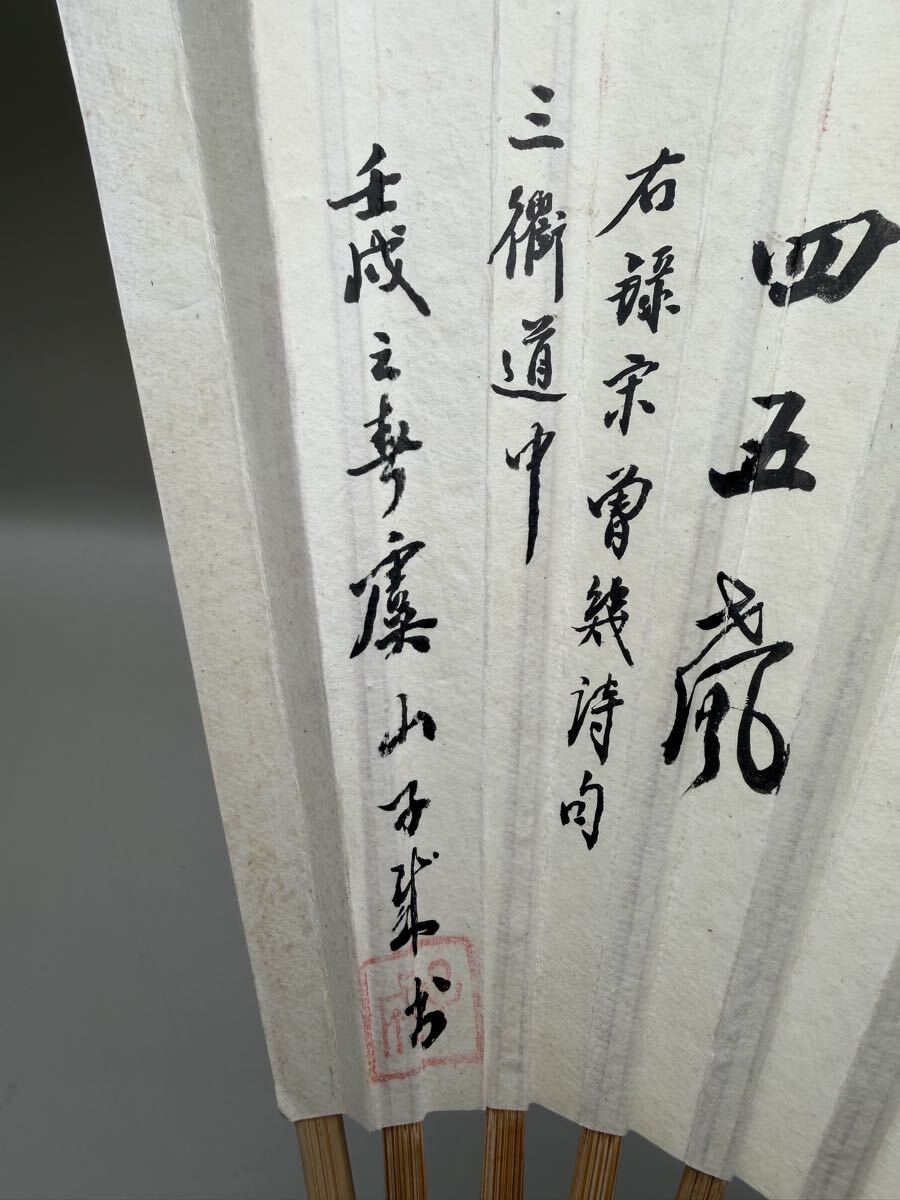 四五聲
右錄宋曾幾詩句
三衢道中
壬戌之春虞山子书